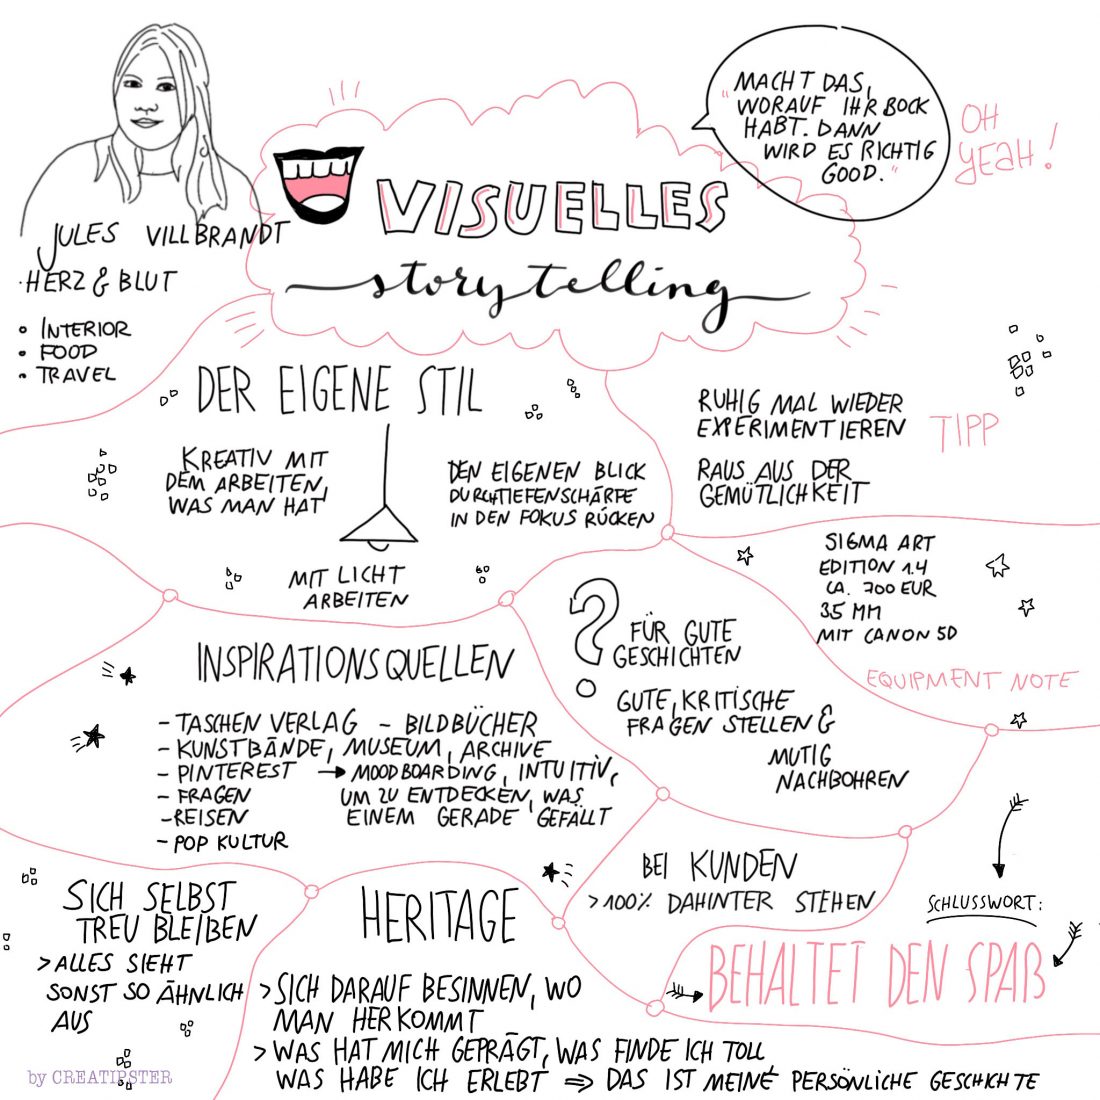 JULES VILLBRANDT
·HERZ & BLUT
• INTERIOR
• FOOD
• TRAVEL
VISUELLES
storytelling
"MACHT DAS,
WORAUF IHR BOCK
HABT. DANN
WIRD ES RICHTIG
GOOD."
OH
YEAH!
DER EIGENE STIL
KREATIV MIT
DEM ARBEITEN,
WAS MAN HAT
DEN EIGENEN BLICK
DURCH TIEFENSCHÄRFE
IN DEN FOKUS RÜCKEN
MIT LICHT
ARBEITEN
RUHIG MAL WIEDER
EXPERIMENTIEREN
RAUS AUS DER
GEMÜTLICHKEIT
TIPP
SIGMA ART
EDITION 1.4
CA. 700 EUR
35 MM
MIT CANON 5D
EQUIPMENT NOTE
?
FÜR GUTE
GESCHICHTEN
GUTE, KRITISCHE
FRAGEN STELLEN &
MUTIG
NACHBOHREN
INSPIRATIONSQUELLEN
- TASCHEN VERLAG - BILDBÜCHER
- KUNSTBÄNDE, MUSEUM, ARCHIVE
- PINTEREST → MOODBOARDING, INTUITIV,
- FRAGEN UM ZU ENTDECKEN, WAS
- REISEN EINEM GERADE GEFÄLLT
- POP KULTUR
BEI KUNDEN
> 100% DAHINTER STEHEN
SICH SELBST
TREU BLEIBEN
> ALLES SIEHT
SONST SO ÄHNLICH
AUS
HERITAGE
> SICH DARAUF BESINNEN, WO
MAN HERKOMMT
> WAS HAT MICH GEPRÄGT, WAS FINDE ICH TOLL
WAS HABE ICH ERLEBT ⇒ DAS IST MEINE PERSÖNLICHE GESCHICHTE
SCHLUSSWORT:
BEHALTET DEN SPAß
by CREATIPSTER